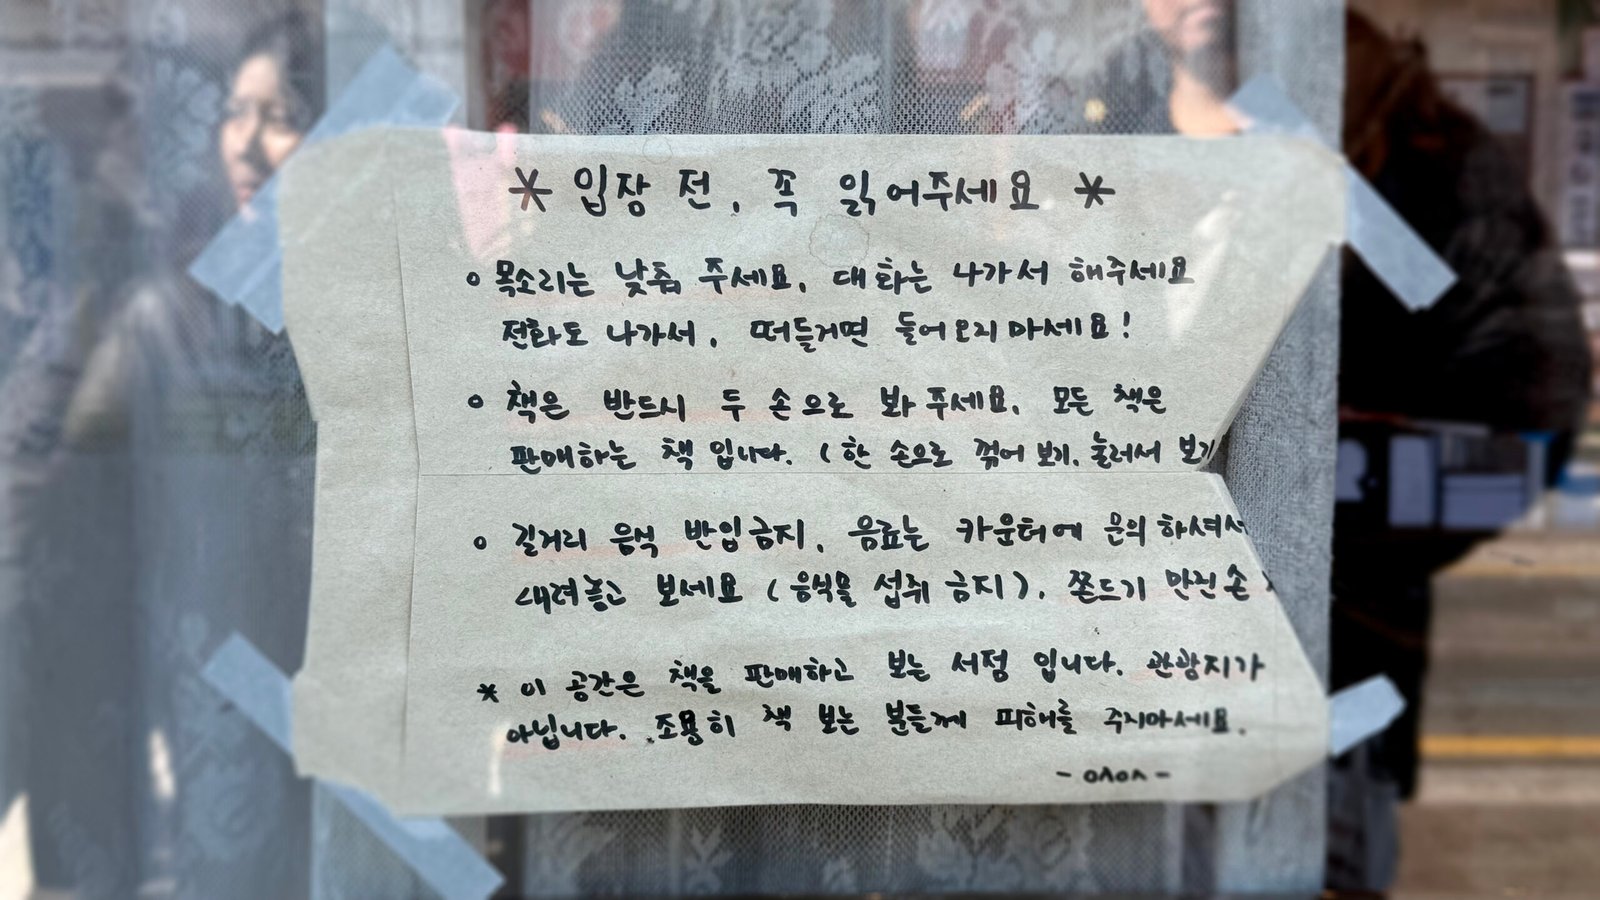 * 입장 전, 꼭 읽어주세요 *
o 목소리는 낮춰 주세요. 대화는 나가서 해주세요
전화도 나가서, 떠들거면 들어오지마세요!
o 책은 반드시 두 손으로 봐주세요. 모든 책은
판매하는 책 입니다. (한 손으로 꺾어 보기, 눌러서 보기
o 길거리 음식 반입금지, 음료는 카운터에 문의하셔서
내려놓고 보세요 (음식물 섭취 금지). 쫀드기 만진 손
* 이 공간은 책을 판매하고 보는 서점 입니다. 관광지가
아닙니다. 조용히 책 보는 분들께 피해를 주지마세요.